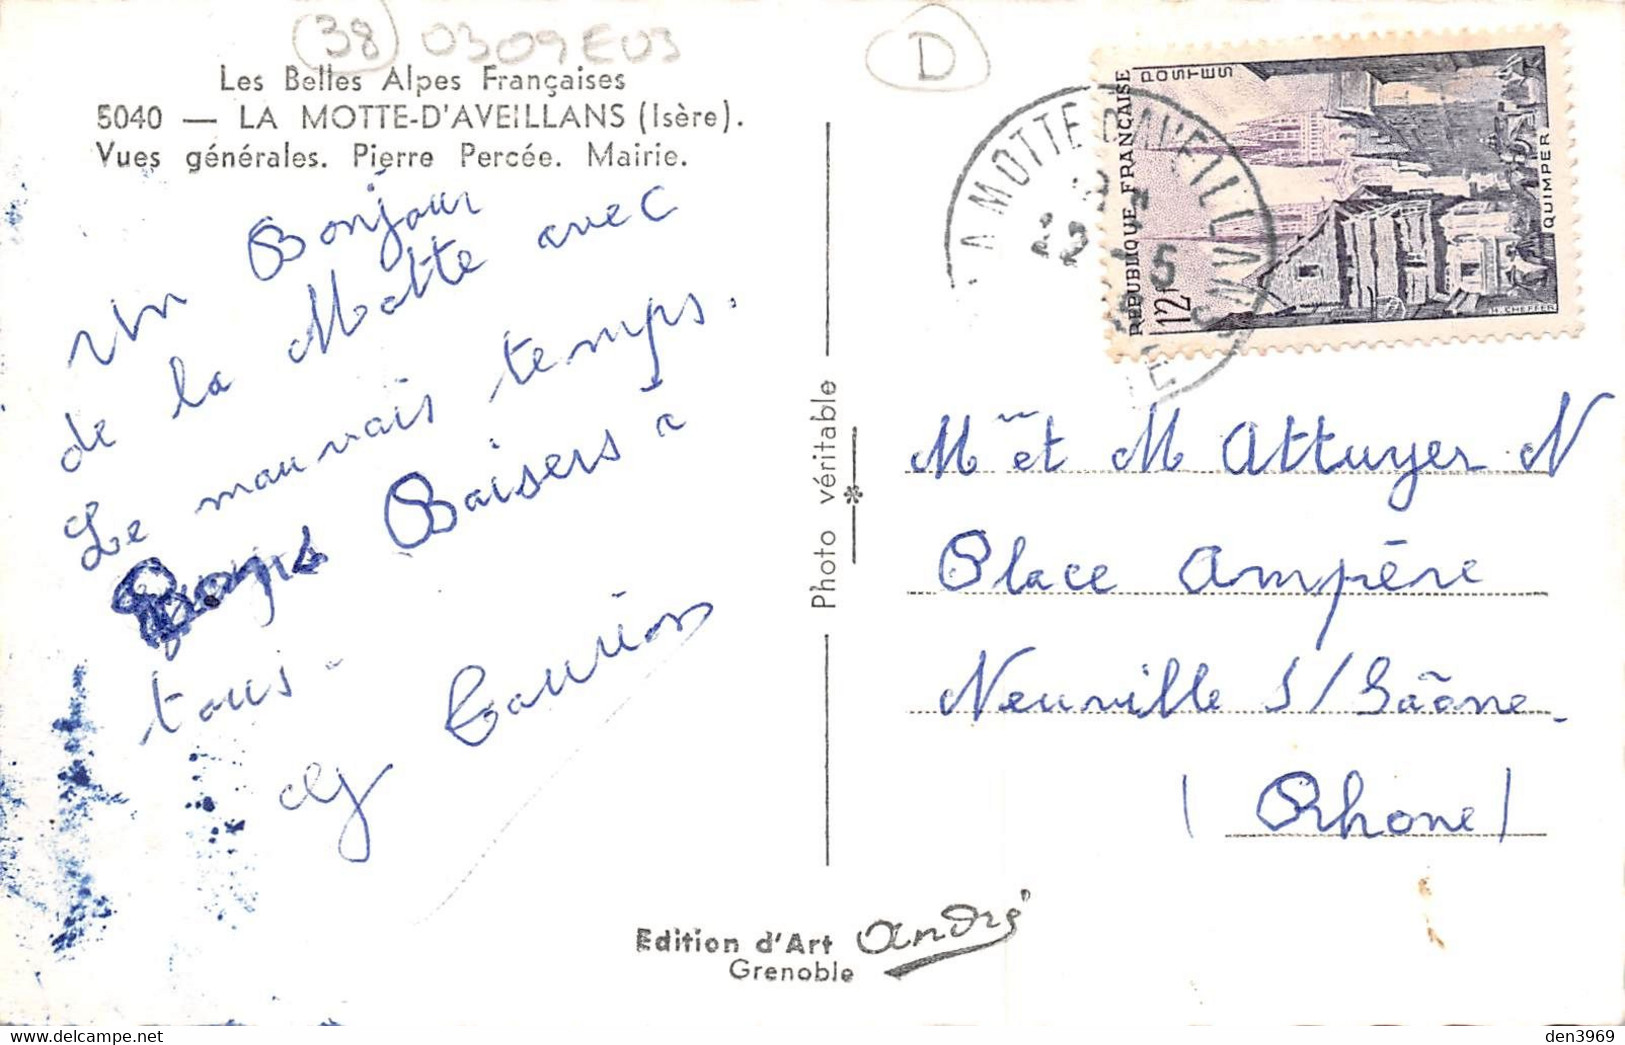 (38) 0309E03
D
Les Belles Alpes Françaises
5040 — LA MOTTE-D'AVEILLANS (Isère).
Vues générales. Pierre Percée. Mairie.
Un Bonjour
de la Motte avec
Le mauvais temps.
Baisers a
tous -
Photo véritable
REPUBLIQUE FRANÇAISE
POSTES
12F
QUIMPER
H. CHEFFER
LA MOTTE D'AVEILLANS
ISERE
Mme et M Attuyer N
Place Ampère
Neuville S/Saône.
(Rhone)
Edition d'Art André
Grenoble
den3969